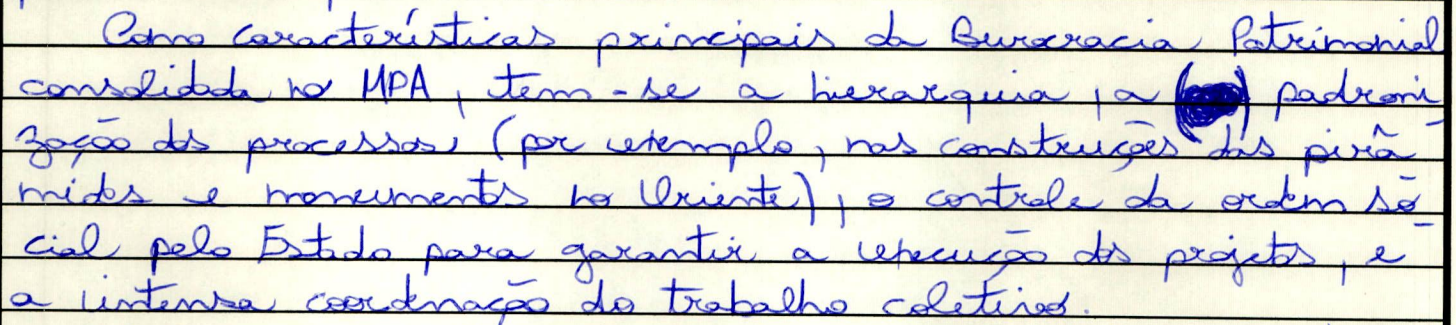 Como características principais da Burocracia Patrimonial
consolidada no MPA, tem-se a hierarquia, a padroni
zação dos processos (por exemplo, nas construções das pirâ
mides e monumentos no Oriente), o controle da ordem so
cial pelo Estado para garantir a execução dos projetos, e
a intensa coordenação do trabalho coletivo.